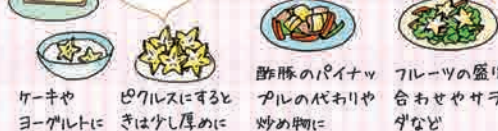 ケーキや
ヨーグルトに
ピクルスにすると
きは少し厚めに
酢豚のパイナッ
プルの代わりや
炒め物に
フルーツの盛り
合わせやサラ
ダなど